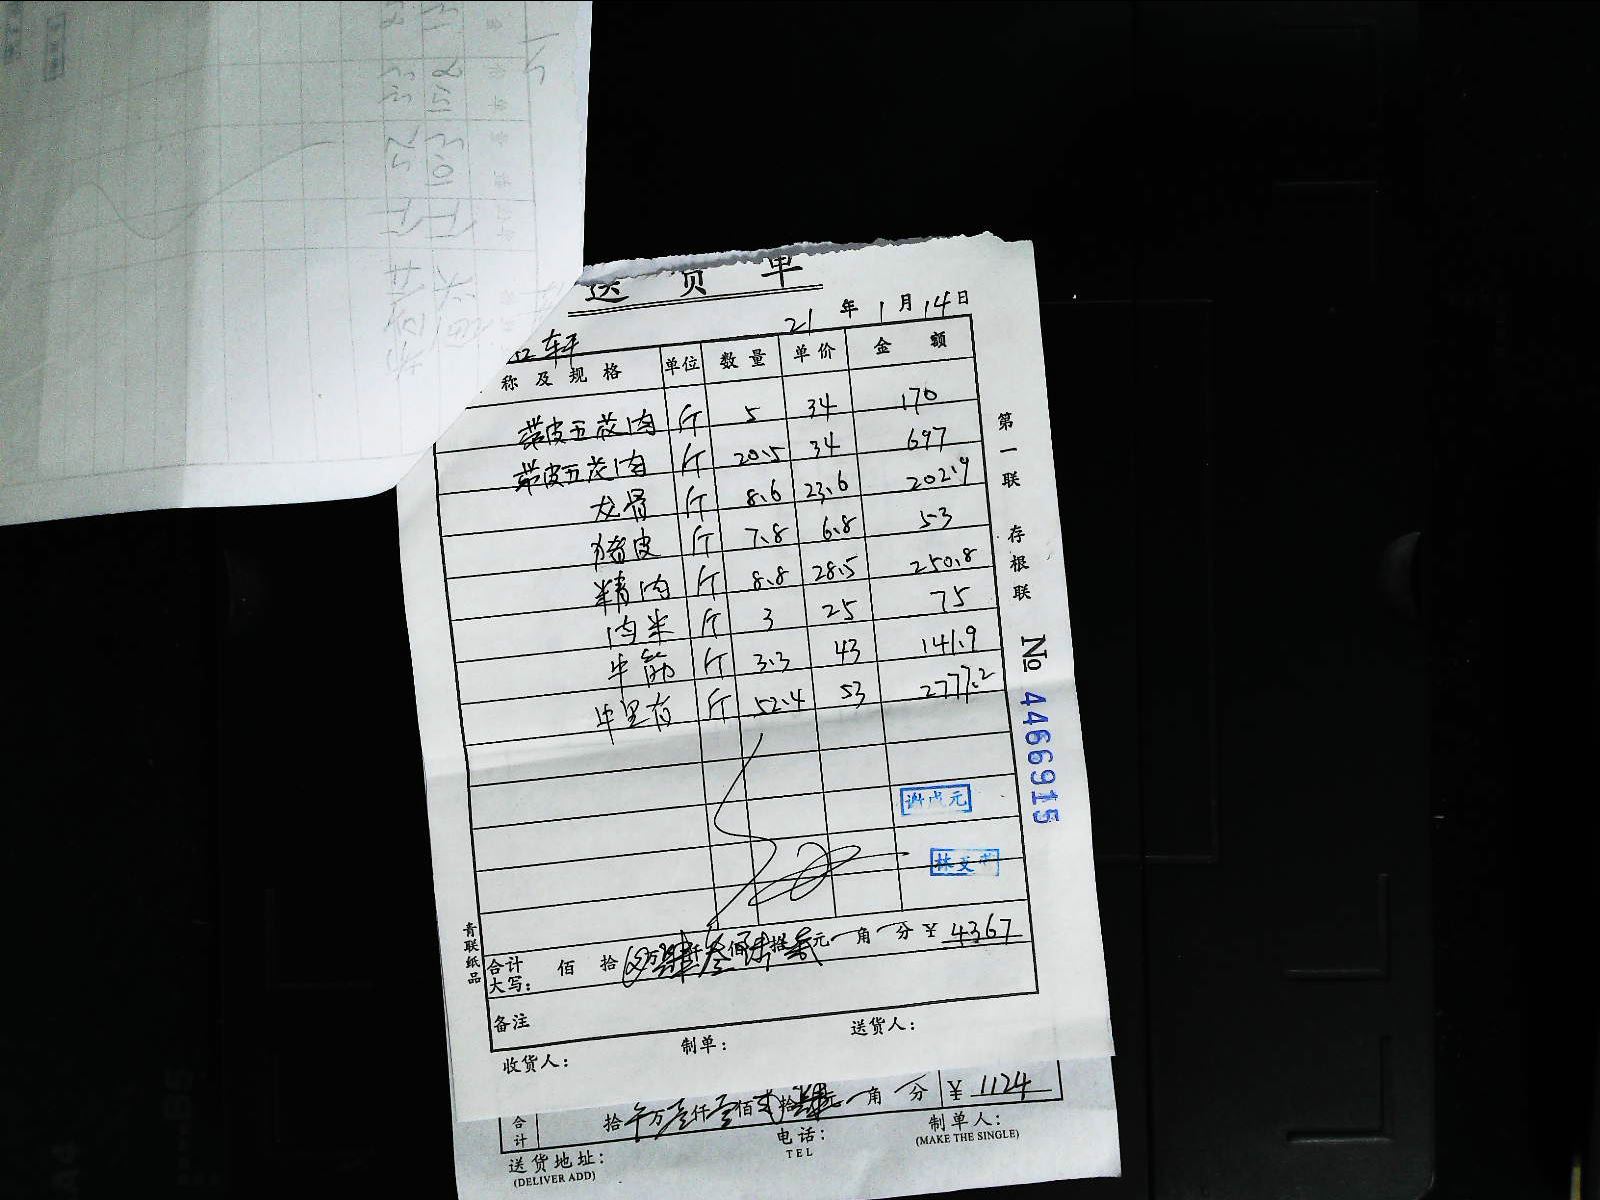 送货单
21 年 1 月 14 日
轩
称及规格 单位 数量 单价 金额
带皮五花肉 斤 5 34 170
带皮五花肉 斤 20.5 34 697
龙骨 斤 8.6 23.6 202.9
猪皮 斤 7.8 6.8 53
精肉 斤 8.8 28.5 250.8
肉米 斤 3 25 75
牛筋 斤 3.3 43 141.9
牛里 斤 52.4 53 2777.2
谢成元
合计大写: 佰 拾 万肆仟叁佰陆拾 元 角 分 ¥ 4367
备注
收货人: 制单: 送货人:
第一联 存根联
№ 4466915
青联纸品
合计 拾 万壹仟壹佰贰拾肆元 角 分 ¥ 1124
送货地址: 电话: 制单人:
(DELIVER ADD) TEL (MAKE THE SINGLE)
斤 103 15.2
斤 52 33